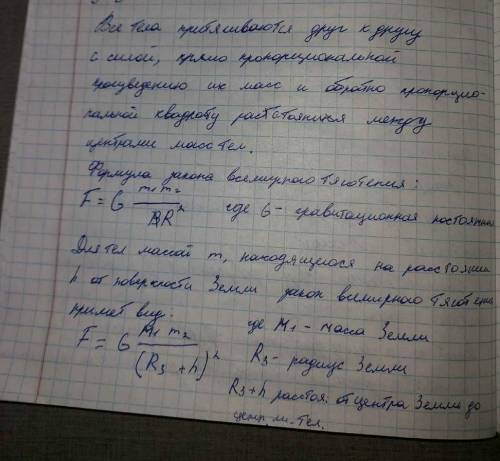 Все тела притягиваются друг к другу
с силой, прямо пропорциональной
произведению их масс и обратно пропорцио-
нальной квадрату расстояния между
центрами масс тел.
Формула закона всемирного тяготения:
F = G m₁m₂ / R² где G - гравитационная постоянная
Для тел массой m, находящегося на расстоянии
h от поверхности Земли закон всемирного тяготения
примет вид:
F = G M₁ m₂ / (R₃ + h)² где M₁ - масса Земли
R₃ - радиус Земли
R₃ + h расстоя. от центра Земли до